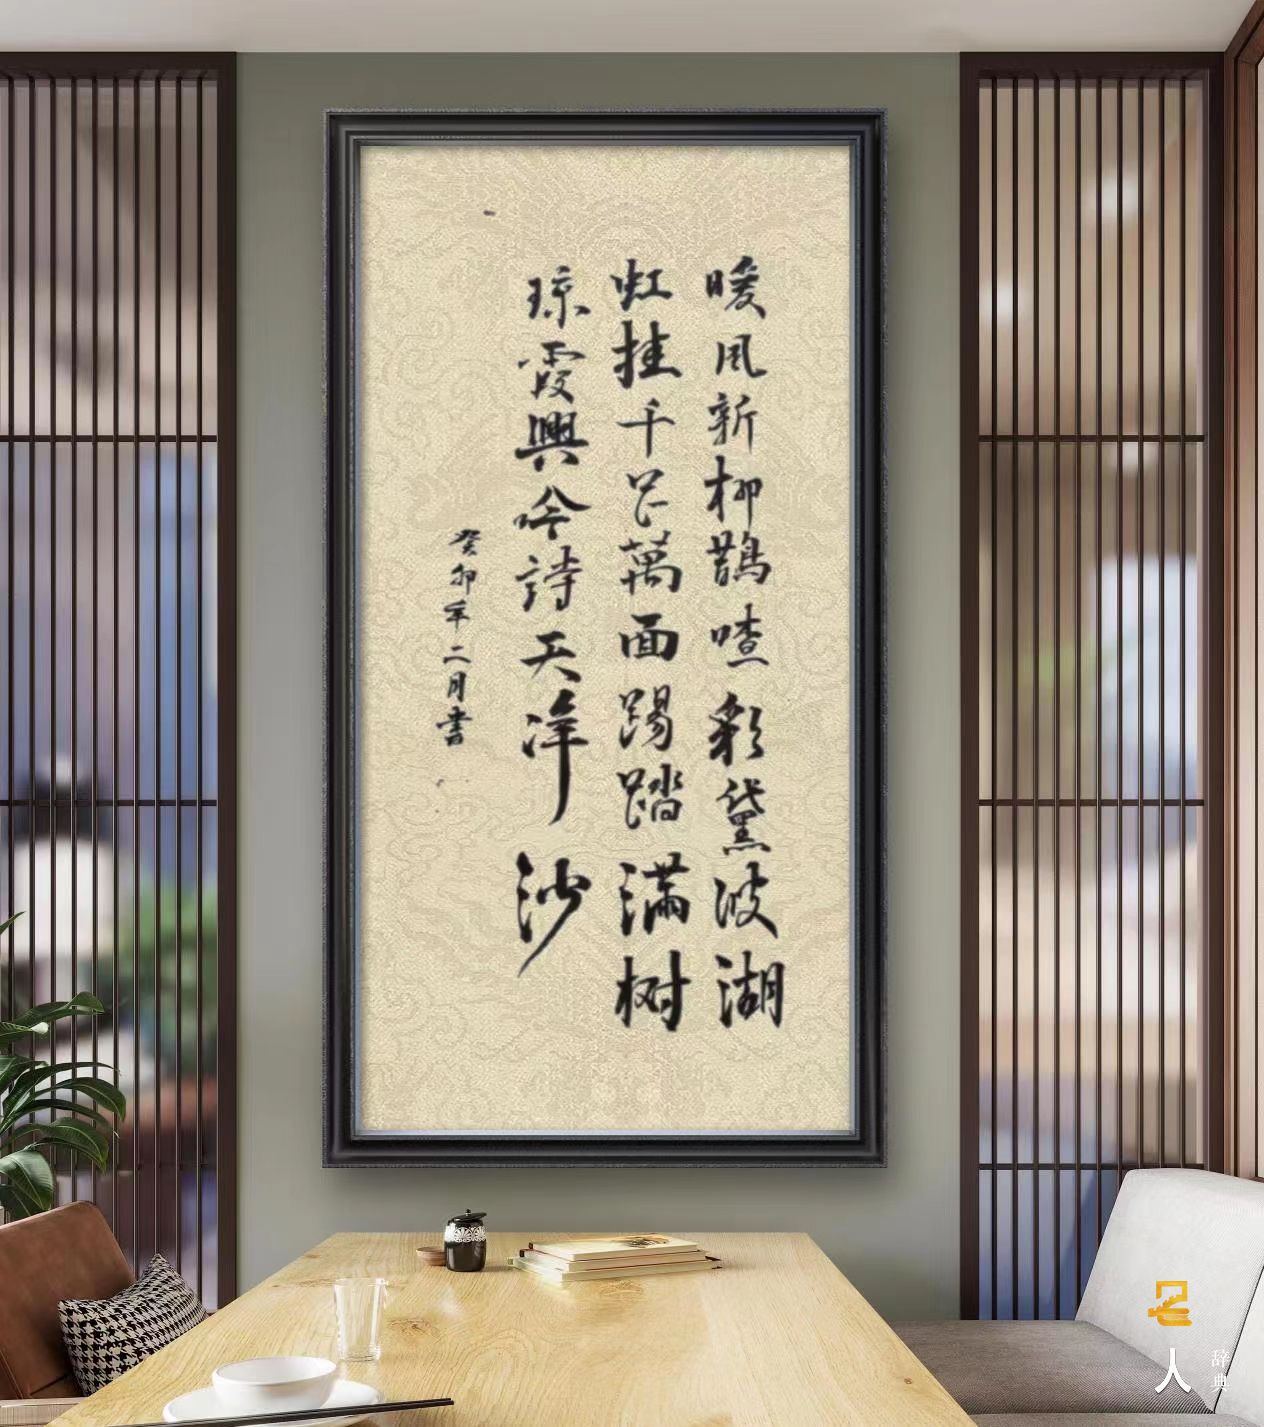 暖風新柳鵲喳彩黛波湖
虹挂千足萬面踢踏滿树
琼霞興吟詩天淨沙
癸卯年二月書
名人
辞典